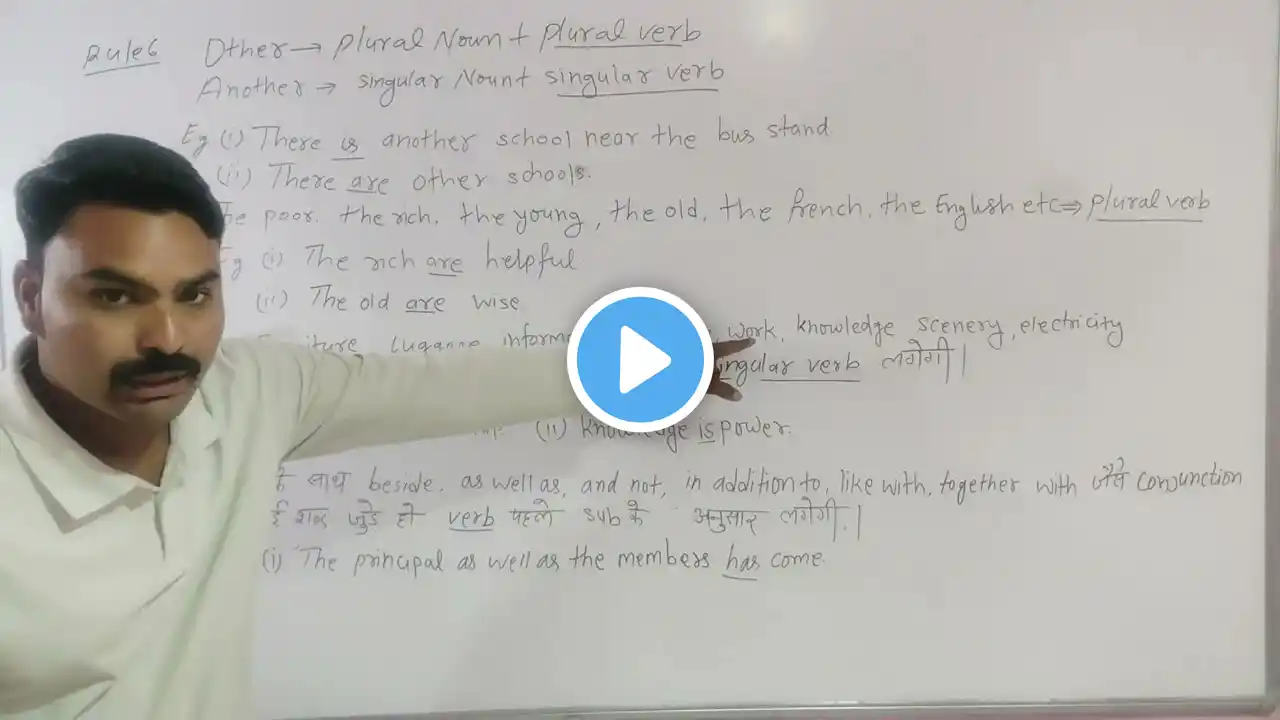 Rule 6 Other → plural Noun + plural verb
Another → singular Noun + singular verb
Eg (i) There is another school near the bus stand
(ii) There are other schools.
the poor. the rich. the young, the old, the french, the English etc ⇒ plural verb
Eg (i) The rich are helpful
(ii) The old are wise
work, knowledge scenery, electricity
singular verb लगेगी।
(ii) knowledge is power.
के साथ beside, as well as, and not, in addition to, like with, together with जैसे conjunction
शब्द जुड़े हो verb पहले sub के अनुसार लगेगी।
(i) The principal as well as the members has come.